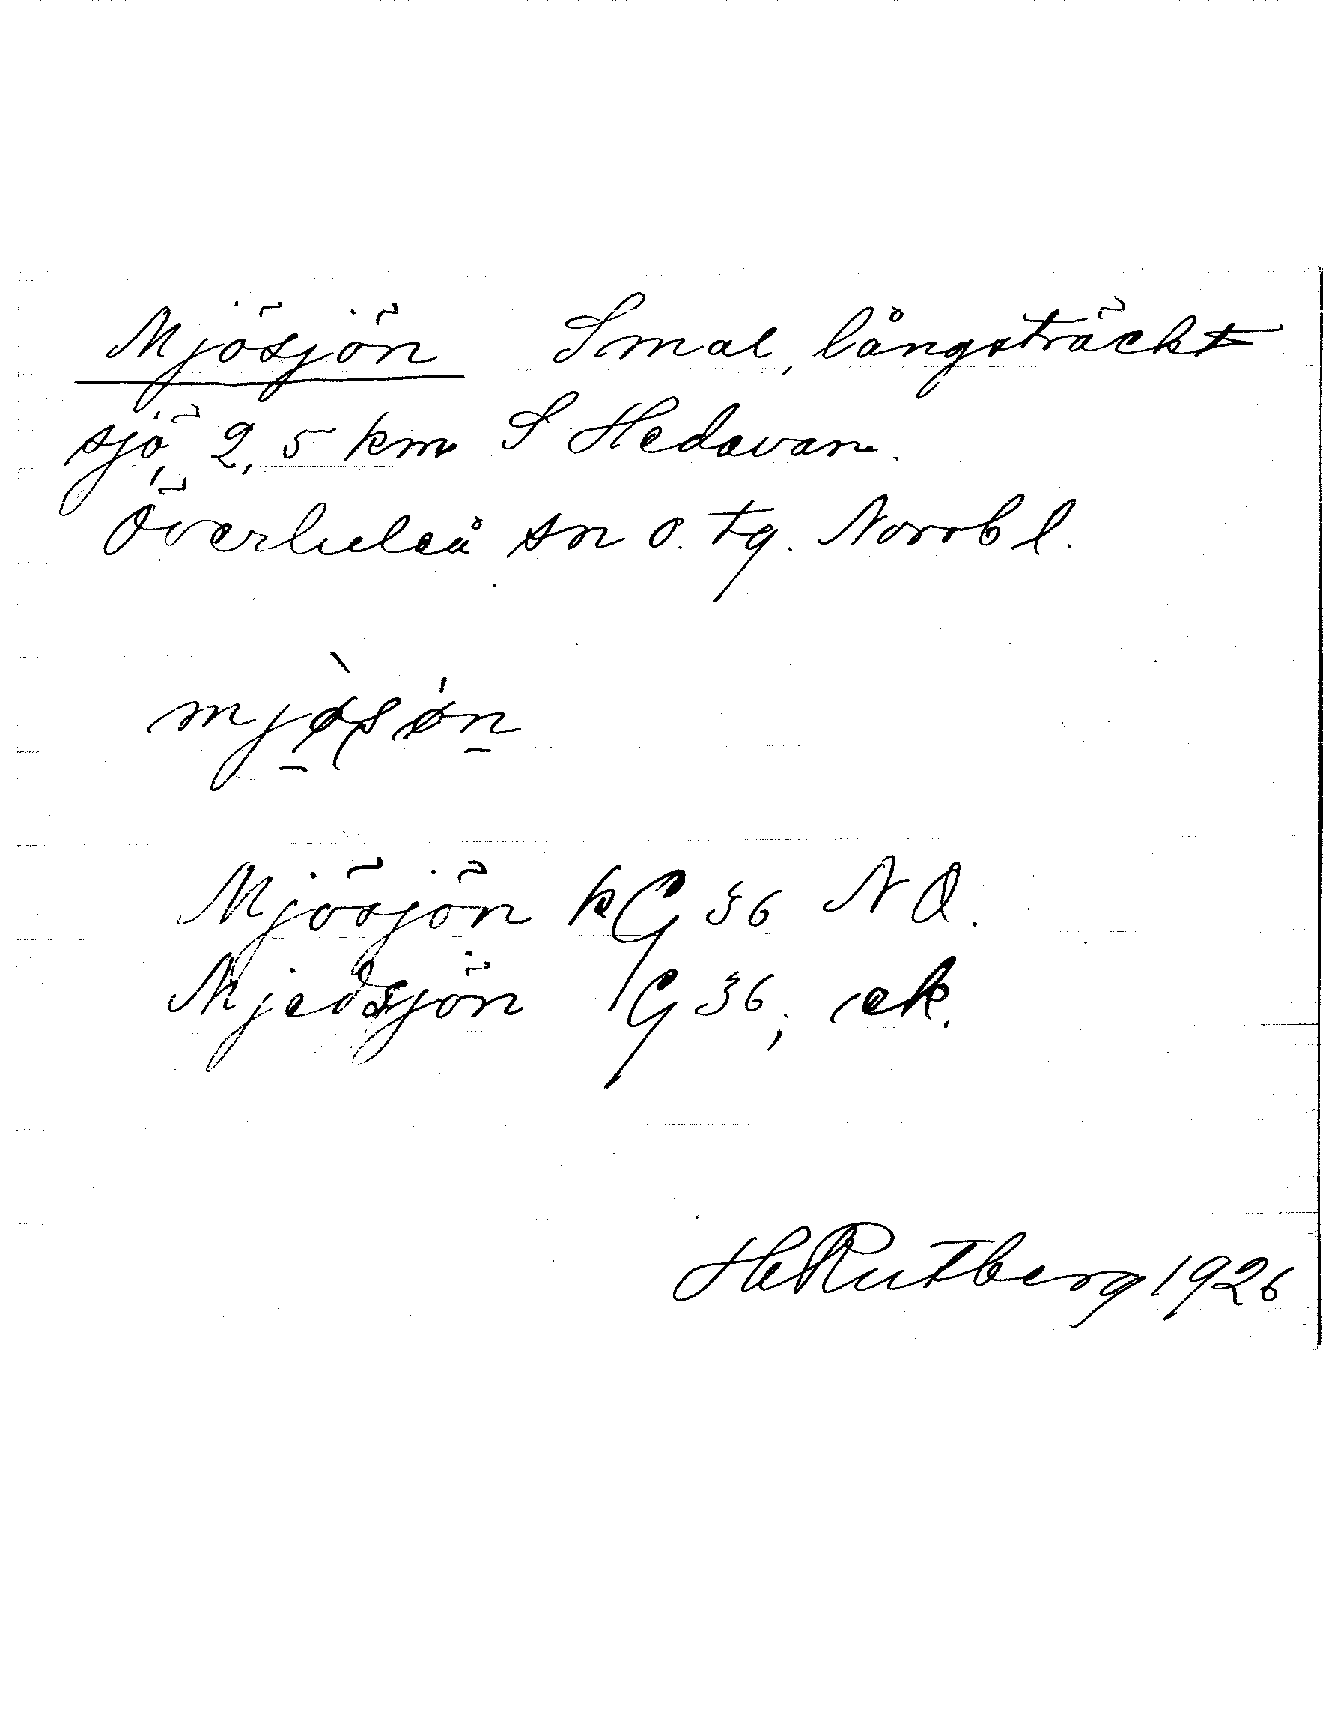 Mjösjön Smal, långsträckt
sjö, 2,5 km S Hedavan.
Överluleå sn o. tg. Norrb l.
Mjösjön kG 36 NO.
Mjedsjön G 36, ek.
H Rutberg 1926